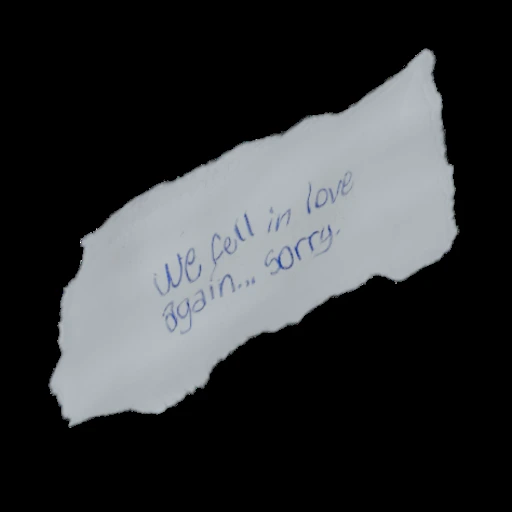 We fell in love
again... sorry.